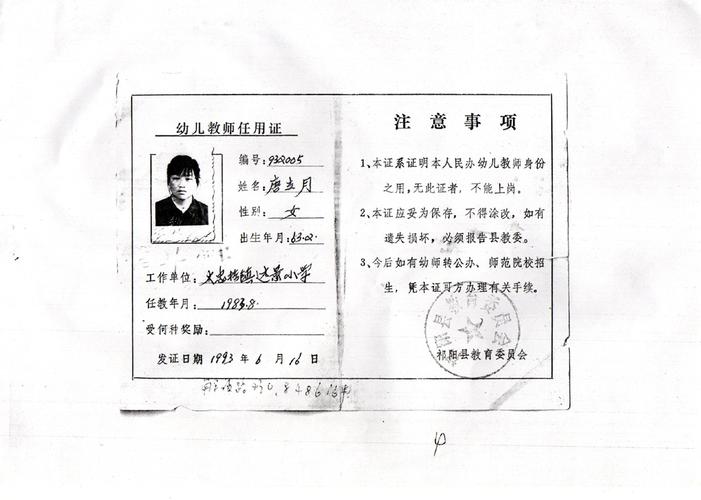 幼儿教师任用证
编号:932005
姓名:唐立月
性别: 女
出生年月:63.2.
工作单位: 文忠桥镇 小学
任教年月: 1983.8.
受何种奖励:
发证日期 1993 年 6 月 16 日
注意事项
1、本证系证明本人民办幼儿教师身份
之用,无此证者,不能上岗。
2、本证应妥为保存,不得涂改,如有
遗失损坏,必须报告县教委。
3、今后如有幼师转公办、师范院校招
生,凭本证可方办理有关手续。
祁阳县教育委员会
阳县教育委员会